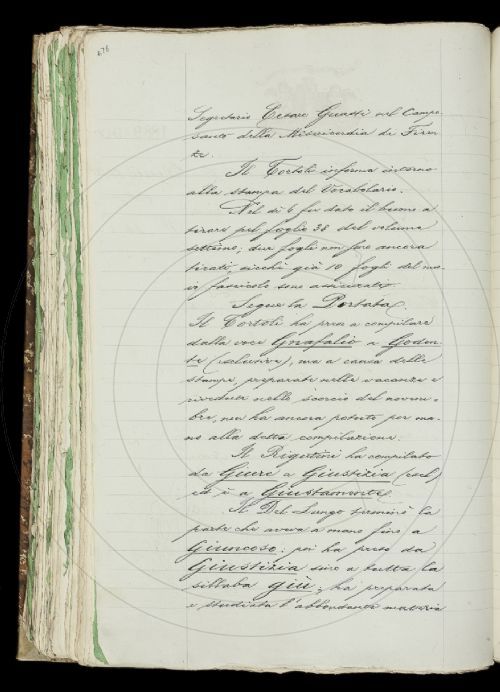 676
Segretario Cesare Guasti nel Campo
santo della Misericordia di Firen
ze.
Il Tortoli informa intorno
alla stampa del Vocabolario.
Nel dì 6 fu dato il buono a
tirare pel foglio 38 del volume
settimo; due fogli non sono ancora
tirati, sicchè già 10 fogli del nuo
vo fascicolo sono assicurati.
Segue la Portata.
Il Tortoli ha preso a compilare
dalla voce Gnafalio a Goden-
te (esclusive), ma a causa della
stampa, preparata nelle vacanze e
riveduta nello scorcio del novem-
bre, non ha ancora potuto por ma-
no alla detta compilazione.
Il Rigutini ha compilato
da Giure a Giustizia (escl.)
ed è a Giustamente.
Il Del Lungo terminò la
parte che aveva a mano fino a
Giuncoso; poi ha preso da
Giustizia sino a tutta la
sillaba giù; ha preparata
e studiata l'abbondante materia